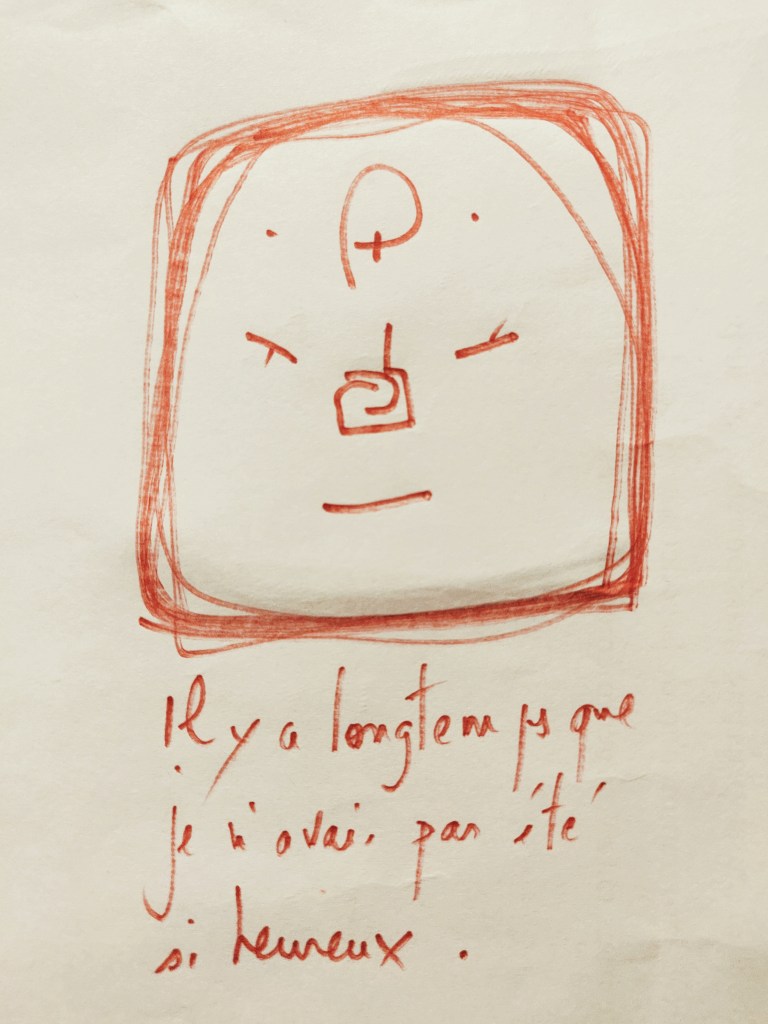 Il y a longtemps que
je n'avais pas été
si heureux.